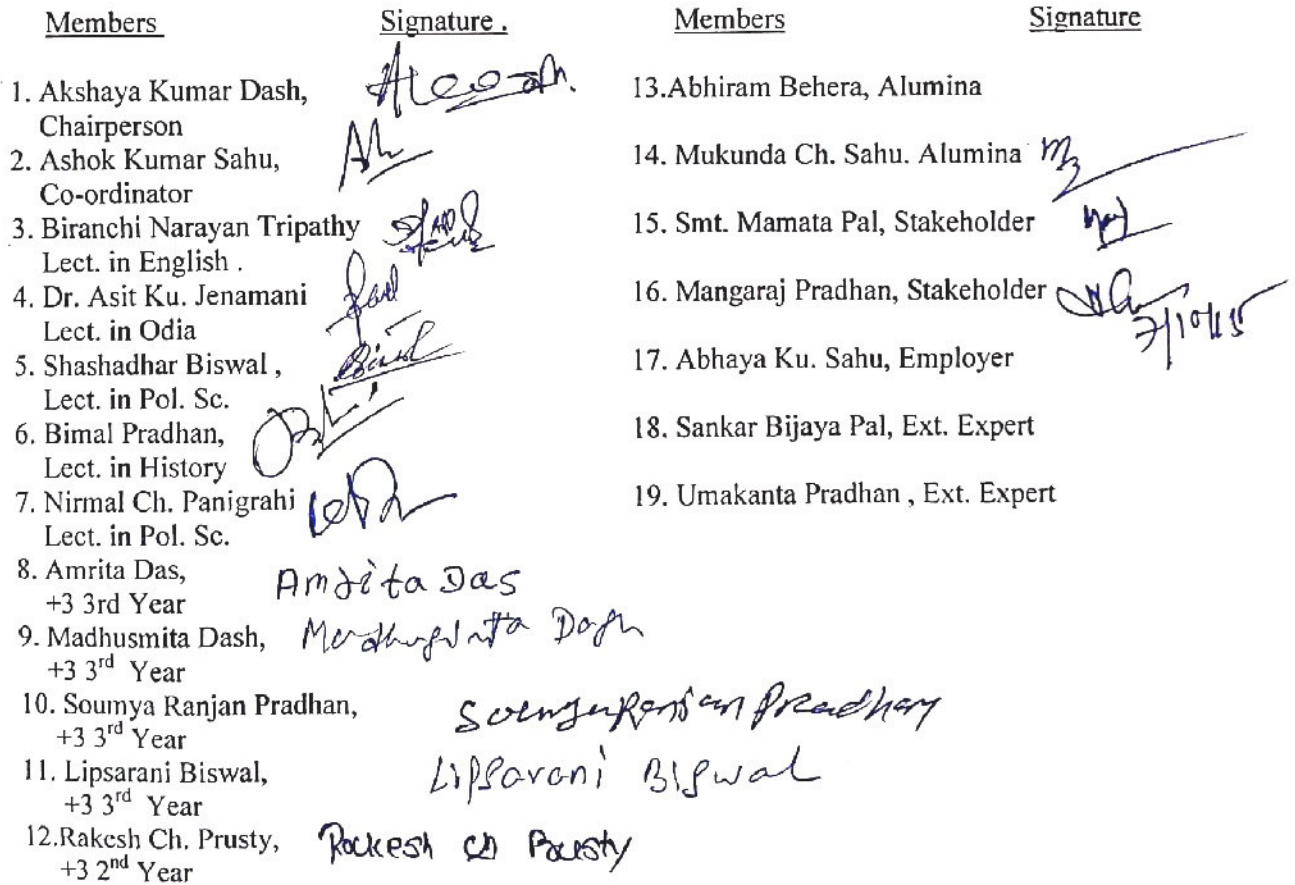 Members Signature .
1. Akshaya Kumar Dash,
Chairperson
2. Ashok Kumar Sahu,
Co-ordinator
3. Biranchi Narayan Tripathy
Lect. in English .
4. Dr. Asit Ku. Jenamani
Lect. in Odia
5. Shashadhar Biswal ,
Lect. in Pol. Sc.
6. Bimal Pradhan,
Lect. in History
7. Nirmal Ch. Panigrahi
Lect. in Pol. Sc.
8. Amrita Das, Amrita Das
+3 3rd Year
9. Madhusmita Dash, Madhusmita Dash
+3 3rd Year
10. Soumya Ranjan Pradhan, Soumya Ranjan Pradhan
+3 3rd Year
11. Lipsarani Biswal, Lipsarani Biswal
+3 3rd Year
12.Rakesh Ch. Prusty, Rakesh ch Prusty
+3 2nd Year
Members Signature
13.Abhiram Behera, Alumina
14. Mukunda Ch. Sahu. Alumina
15. Smt. Mamata Pal, Stakeholder
16. Mangaraj Pradhan, Stakeholder
7/10/15
17. Abhaya Ku. Sahu, Employer
18. Sankar Bijaya Pal, Ext. Expert
19. Umakanta Pradhan , Ext. Expert